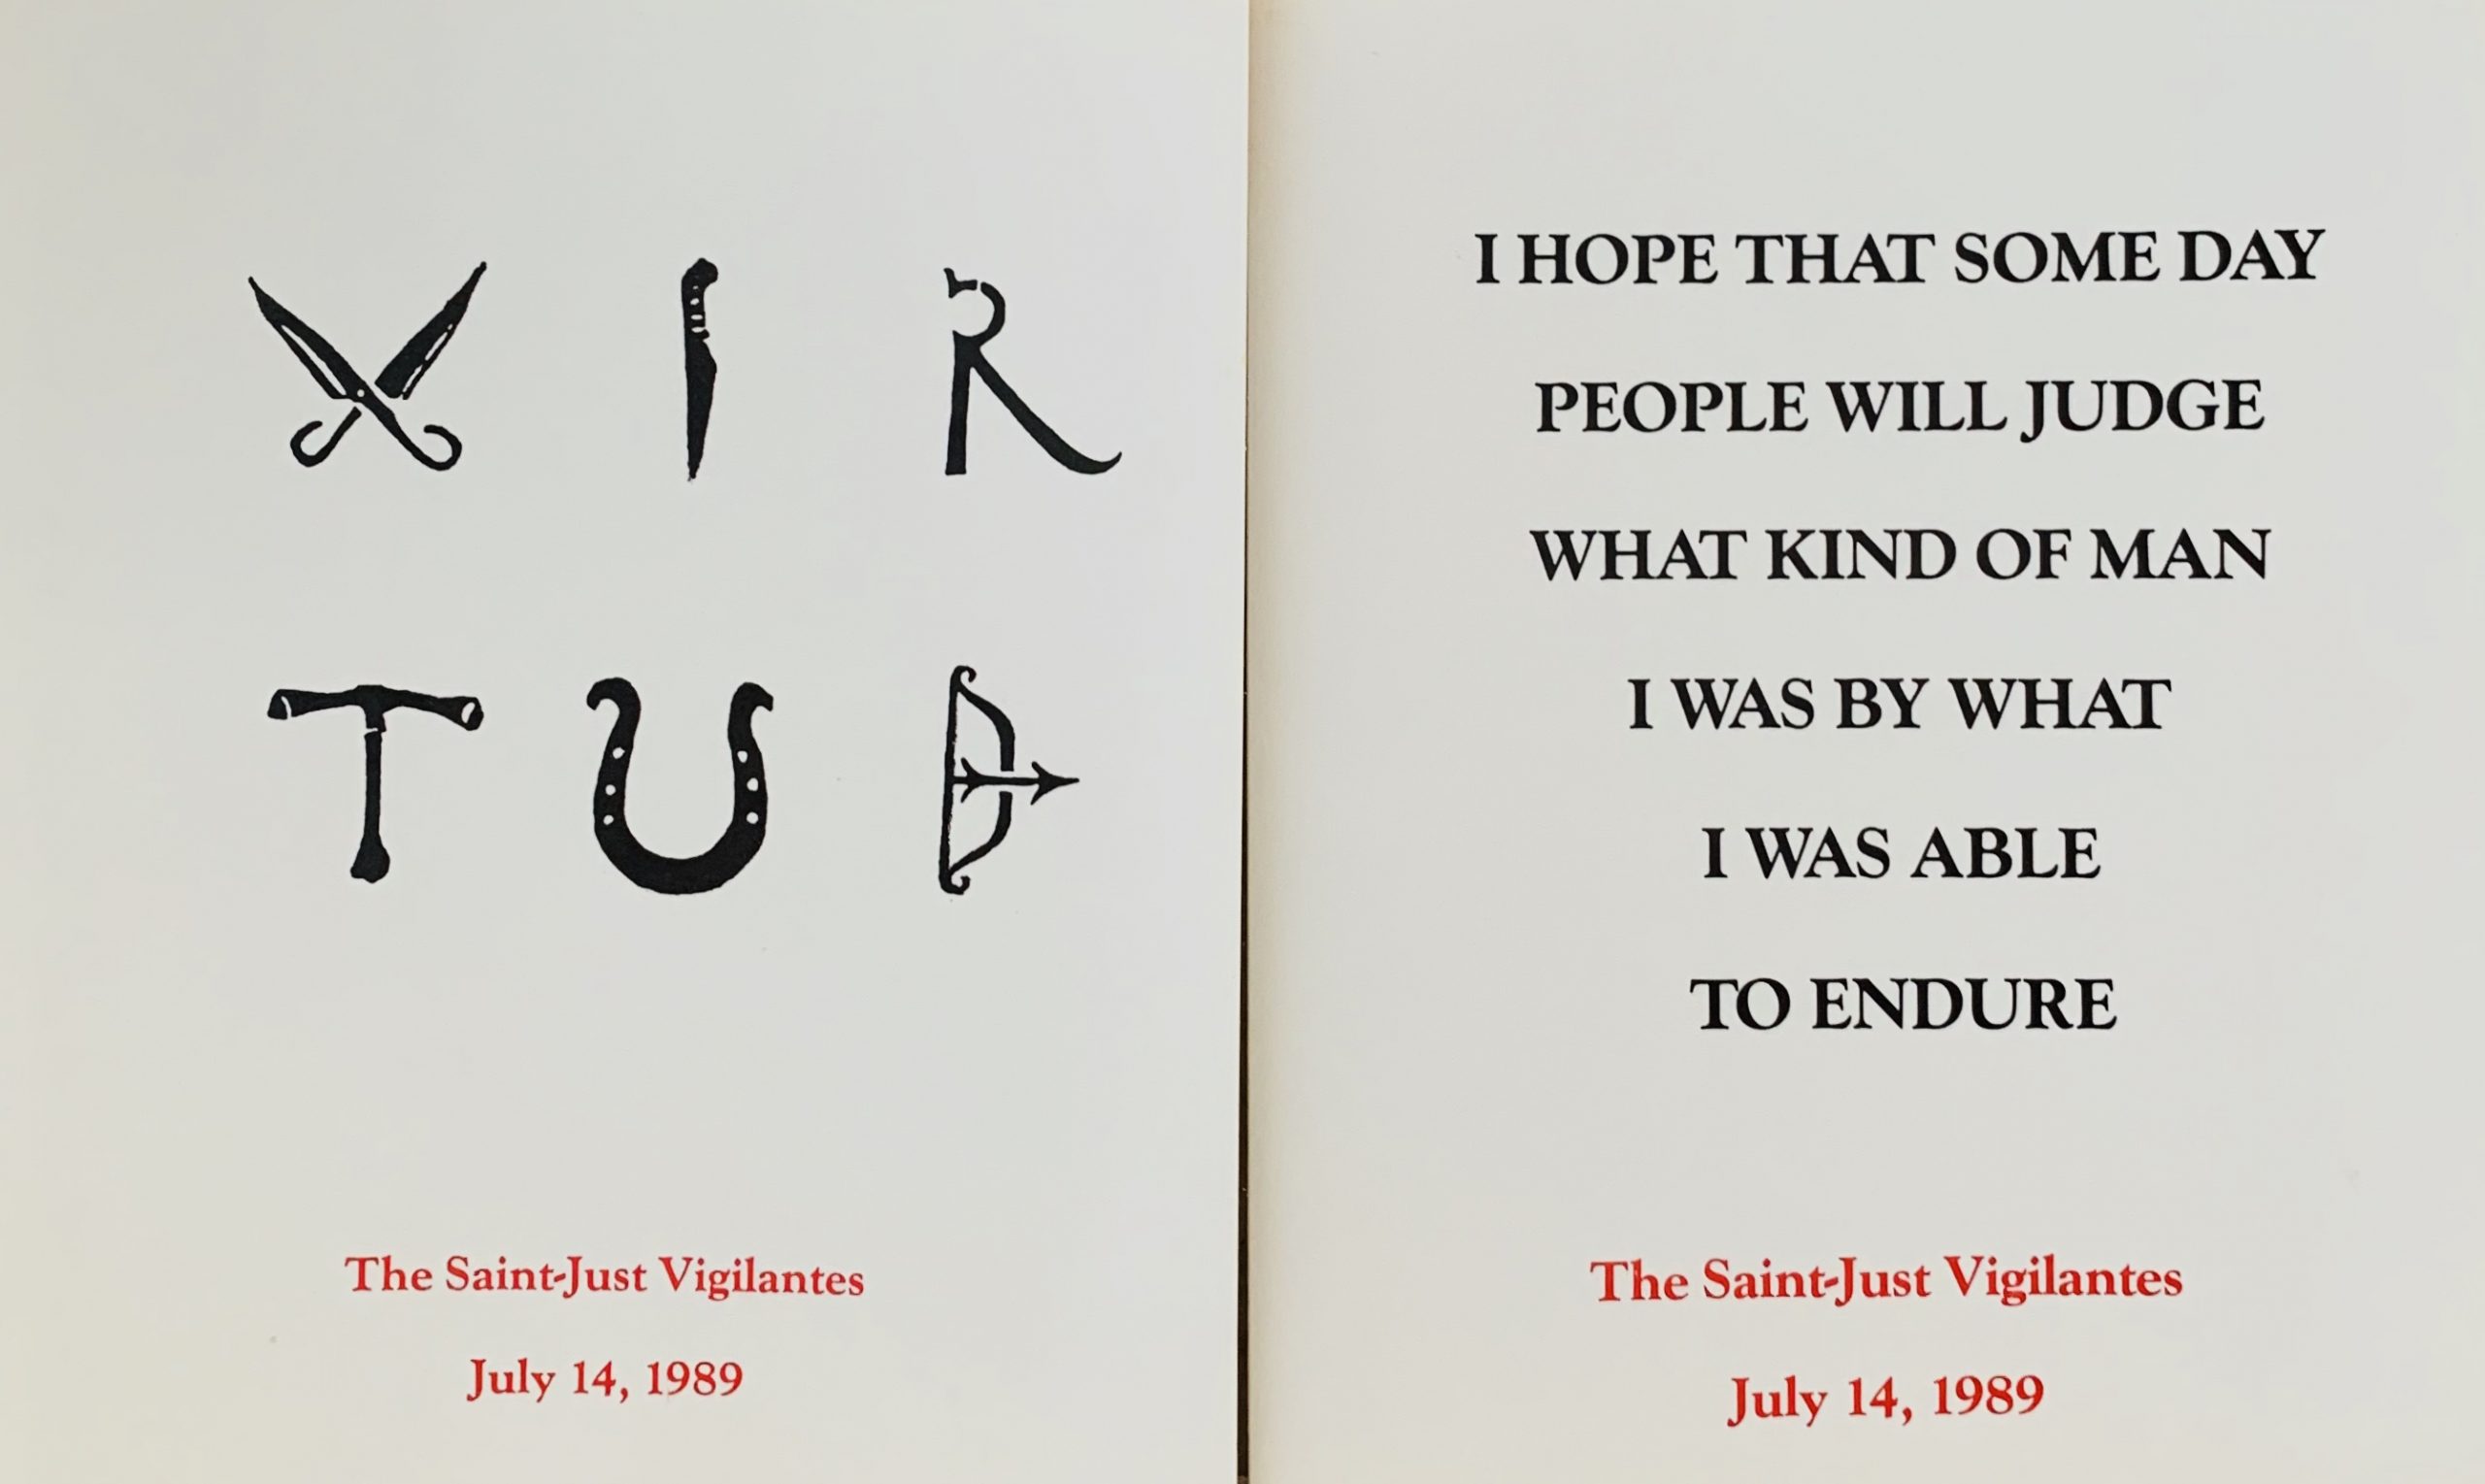 VIR
TUE
The Saint-Just Vigilantes
July 14, 1989
I HOPE THAT SOME DAY
PEOPLE WILL JUDGE
WHAT KIND OF MAN
I WAS BY WHAT
I WAS ABLE
TO ENDURE
The Saint-Just Vigilantes
July 14, 1989